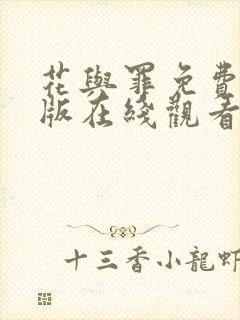 花與罪免費
版在綫觀看
十三香小龍蝦